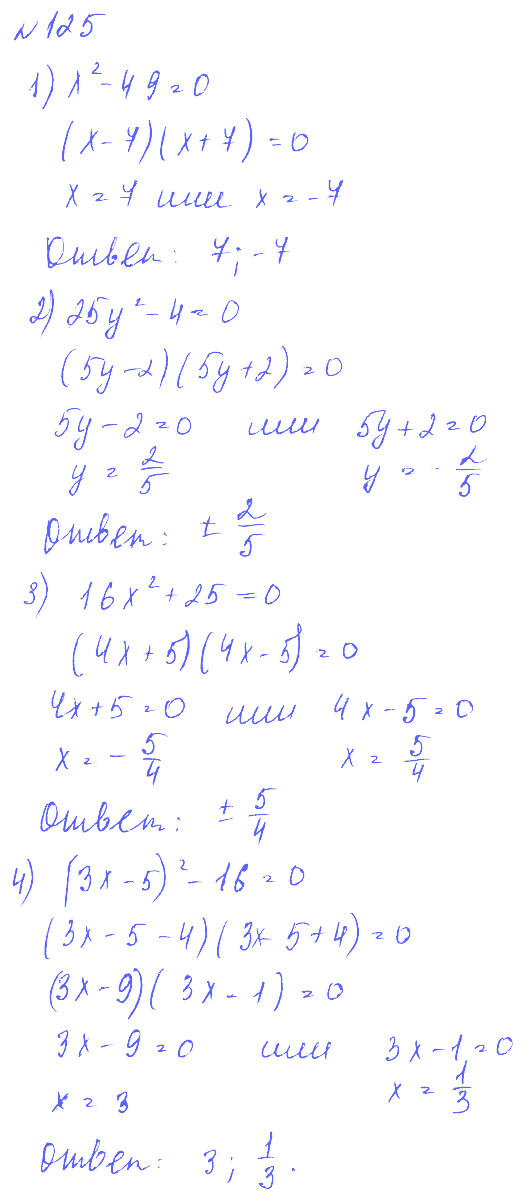 №125
1) x² - 49 = 0
(x - 7)(x + 7) = 0
x = 7 или x = -7
Ответ: 7; -7
2) 25y² - 4 = 0
(5y - 2)(5y + 2) = 0
5y - 2 = 0 или 5y + 2 = 0
y = 2/5 y = -2/5
Ответ: ± 2/5
3) 16x² + 25 = 0
(4x + 5)(4x - 5) = 0
4x + 5 = 0 или 4x - 5 = 0
x = - 5/4 x = 5/4
Ответ: ± 5/4
4) (3x - 5)² - 16 = 0
(3x - 5 - 4)(3x - 5 + 4) = 0
(3x - 9)(3x - 1) = 0
3x - 9 = 0 или 3x - 1 = 0
x = 3 x = 1/3
Ответ: 3; 1/3.